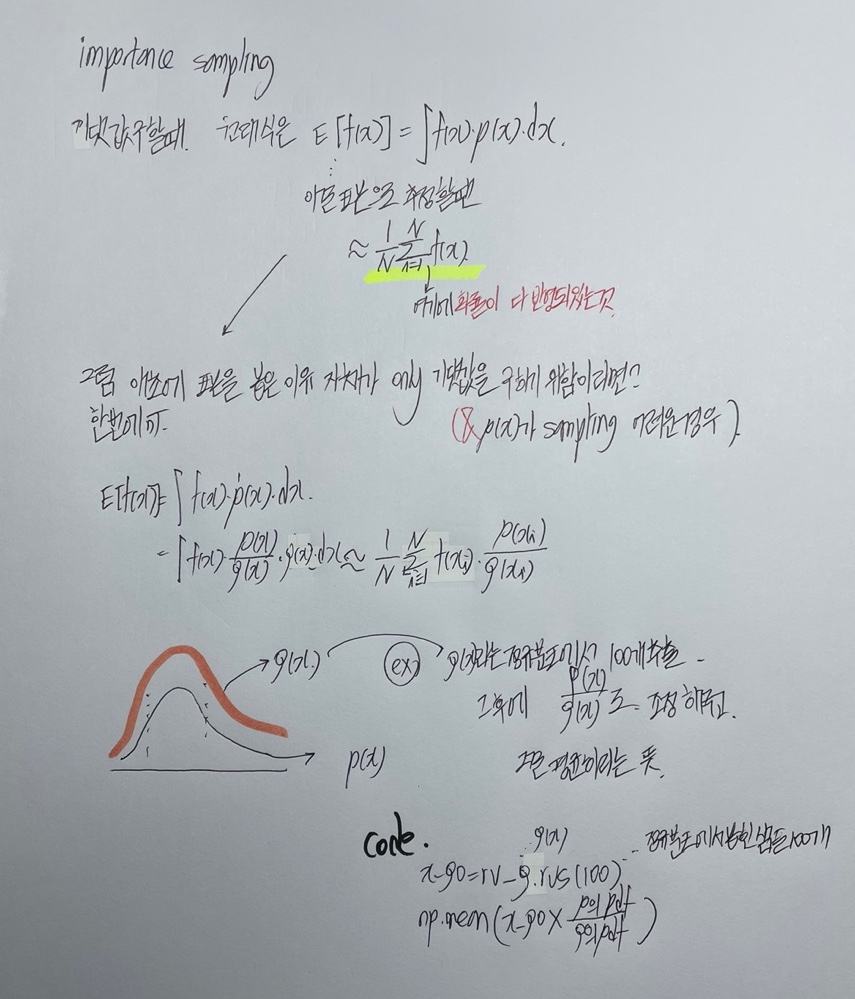 importance sampling
기댓값구할때. 원래식은 E[f(x)] = ∫f(x)·p(x)·dx.
이를 표본으로 추정할땐
≈ 1/N Σ_{i=1}^{N} f(x)
여기에 확률이 다 반영되있는것.
그럼 애초에 표본을 뽑은 이유 자체가 only 기댓값을 구하기 위함이라면?
한번에 가.
(& p(x)가 sampling 어려운경우).
E[f(x)]는 ∫f(x)·p(x)·dx.
= ∫f(x)·p(x)/q(x)·q(x)·dx ≈ 1/N Σ_{i=1}^{N} f(xi)·p(xi)/q(xi)
q(x).
ex)
q(x)라는 정규분포에서 100개추출.
그후에 p(x)/q(x)로 조정해주고.
p(x)
그들 평균이라는 뜻.
code.
q(x)
정규분포에서 뽑힌 샘플100개
x_q0 = rv_q.rvs(100)
np.mean(x_q0 × p의pdf/q의pdf)